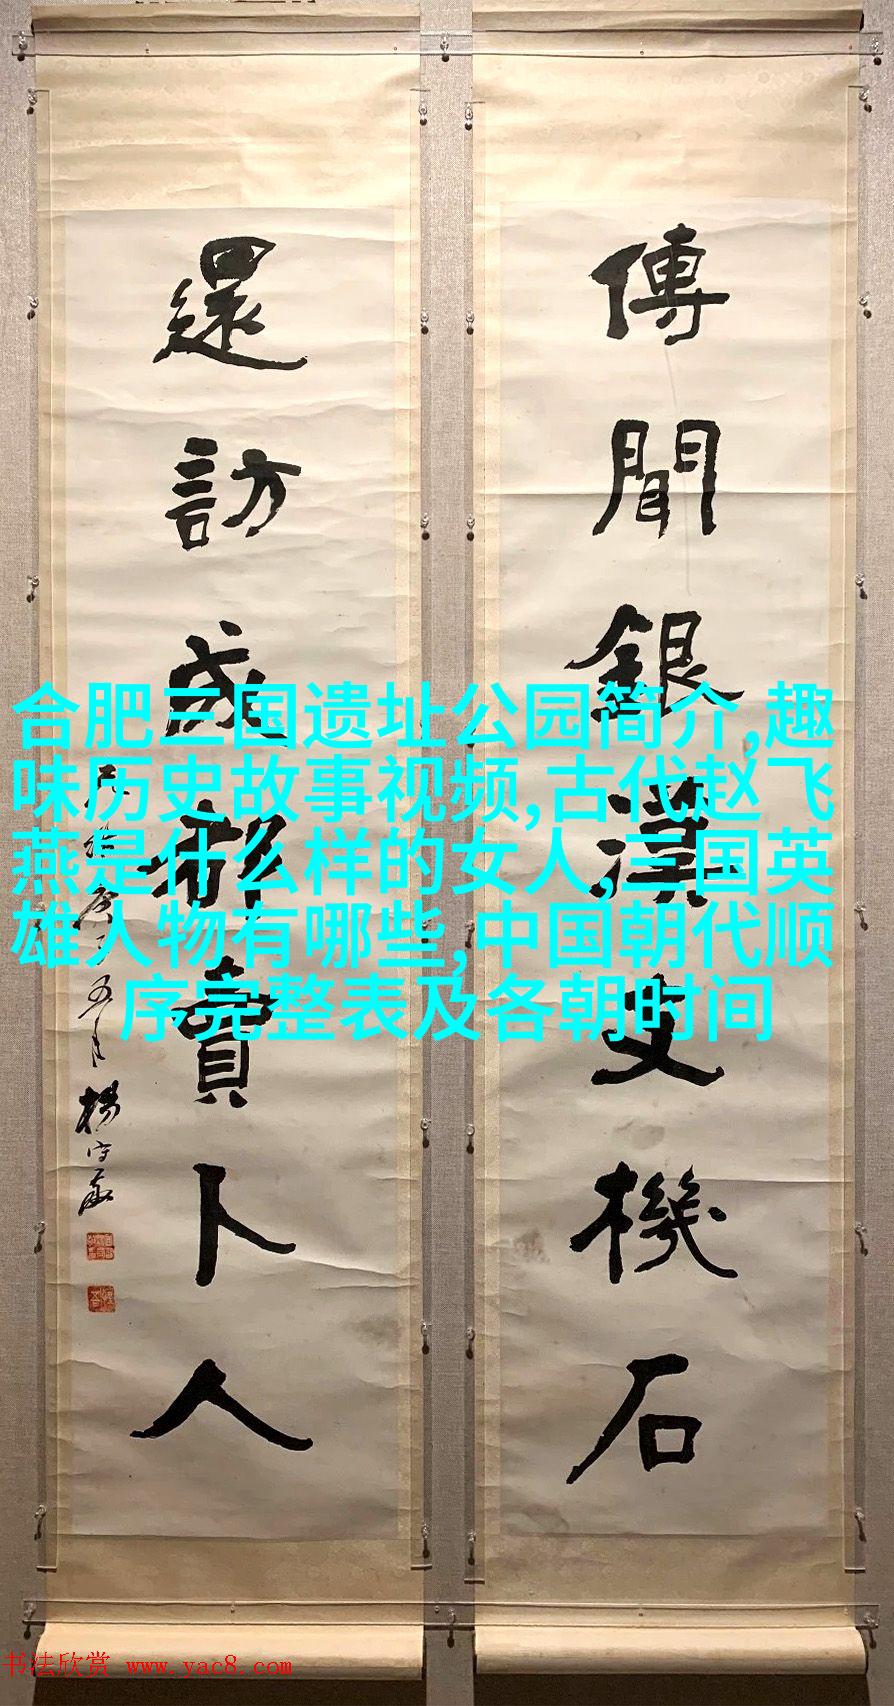 傳聞銀漢支機石
還訪成都賣卜人
五月楊守敬
合肥三国遗址公园简介,趣
味历史故事视频,古代赵飞
燕是什么样的女人,三国英
雄人物有哪些,中国朝代顺
序完整表及各朝时间
书法欣赏 www.yac8.com